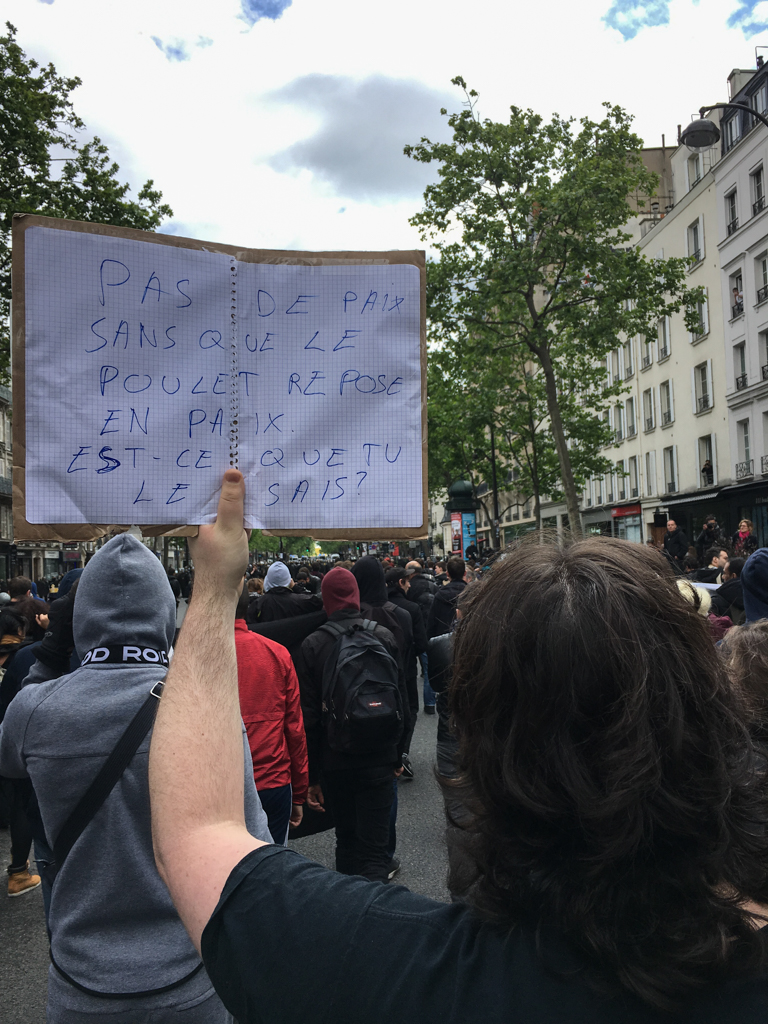 PAS DE PAIX
SANS QUE LE
POULET REPOSE
EN PAIX.
EST-CE QUE TU
LE SAIS?
OD ROL